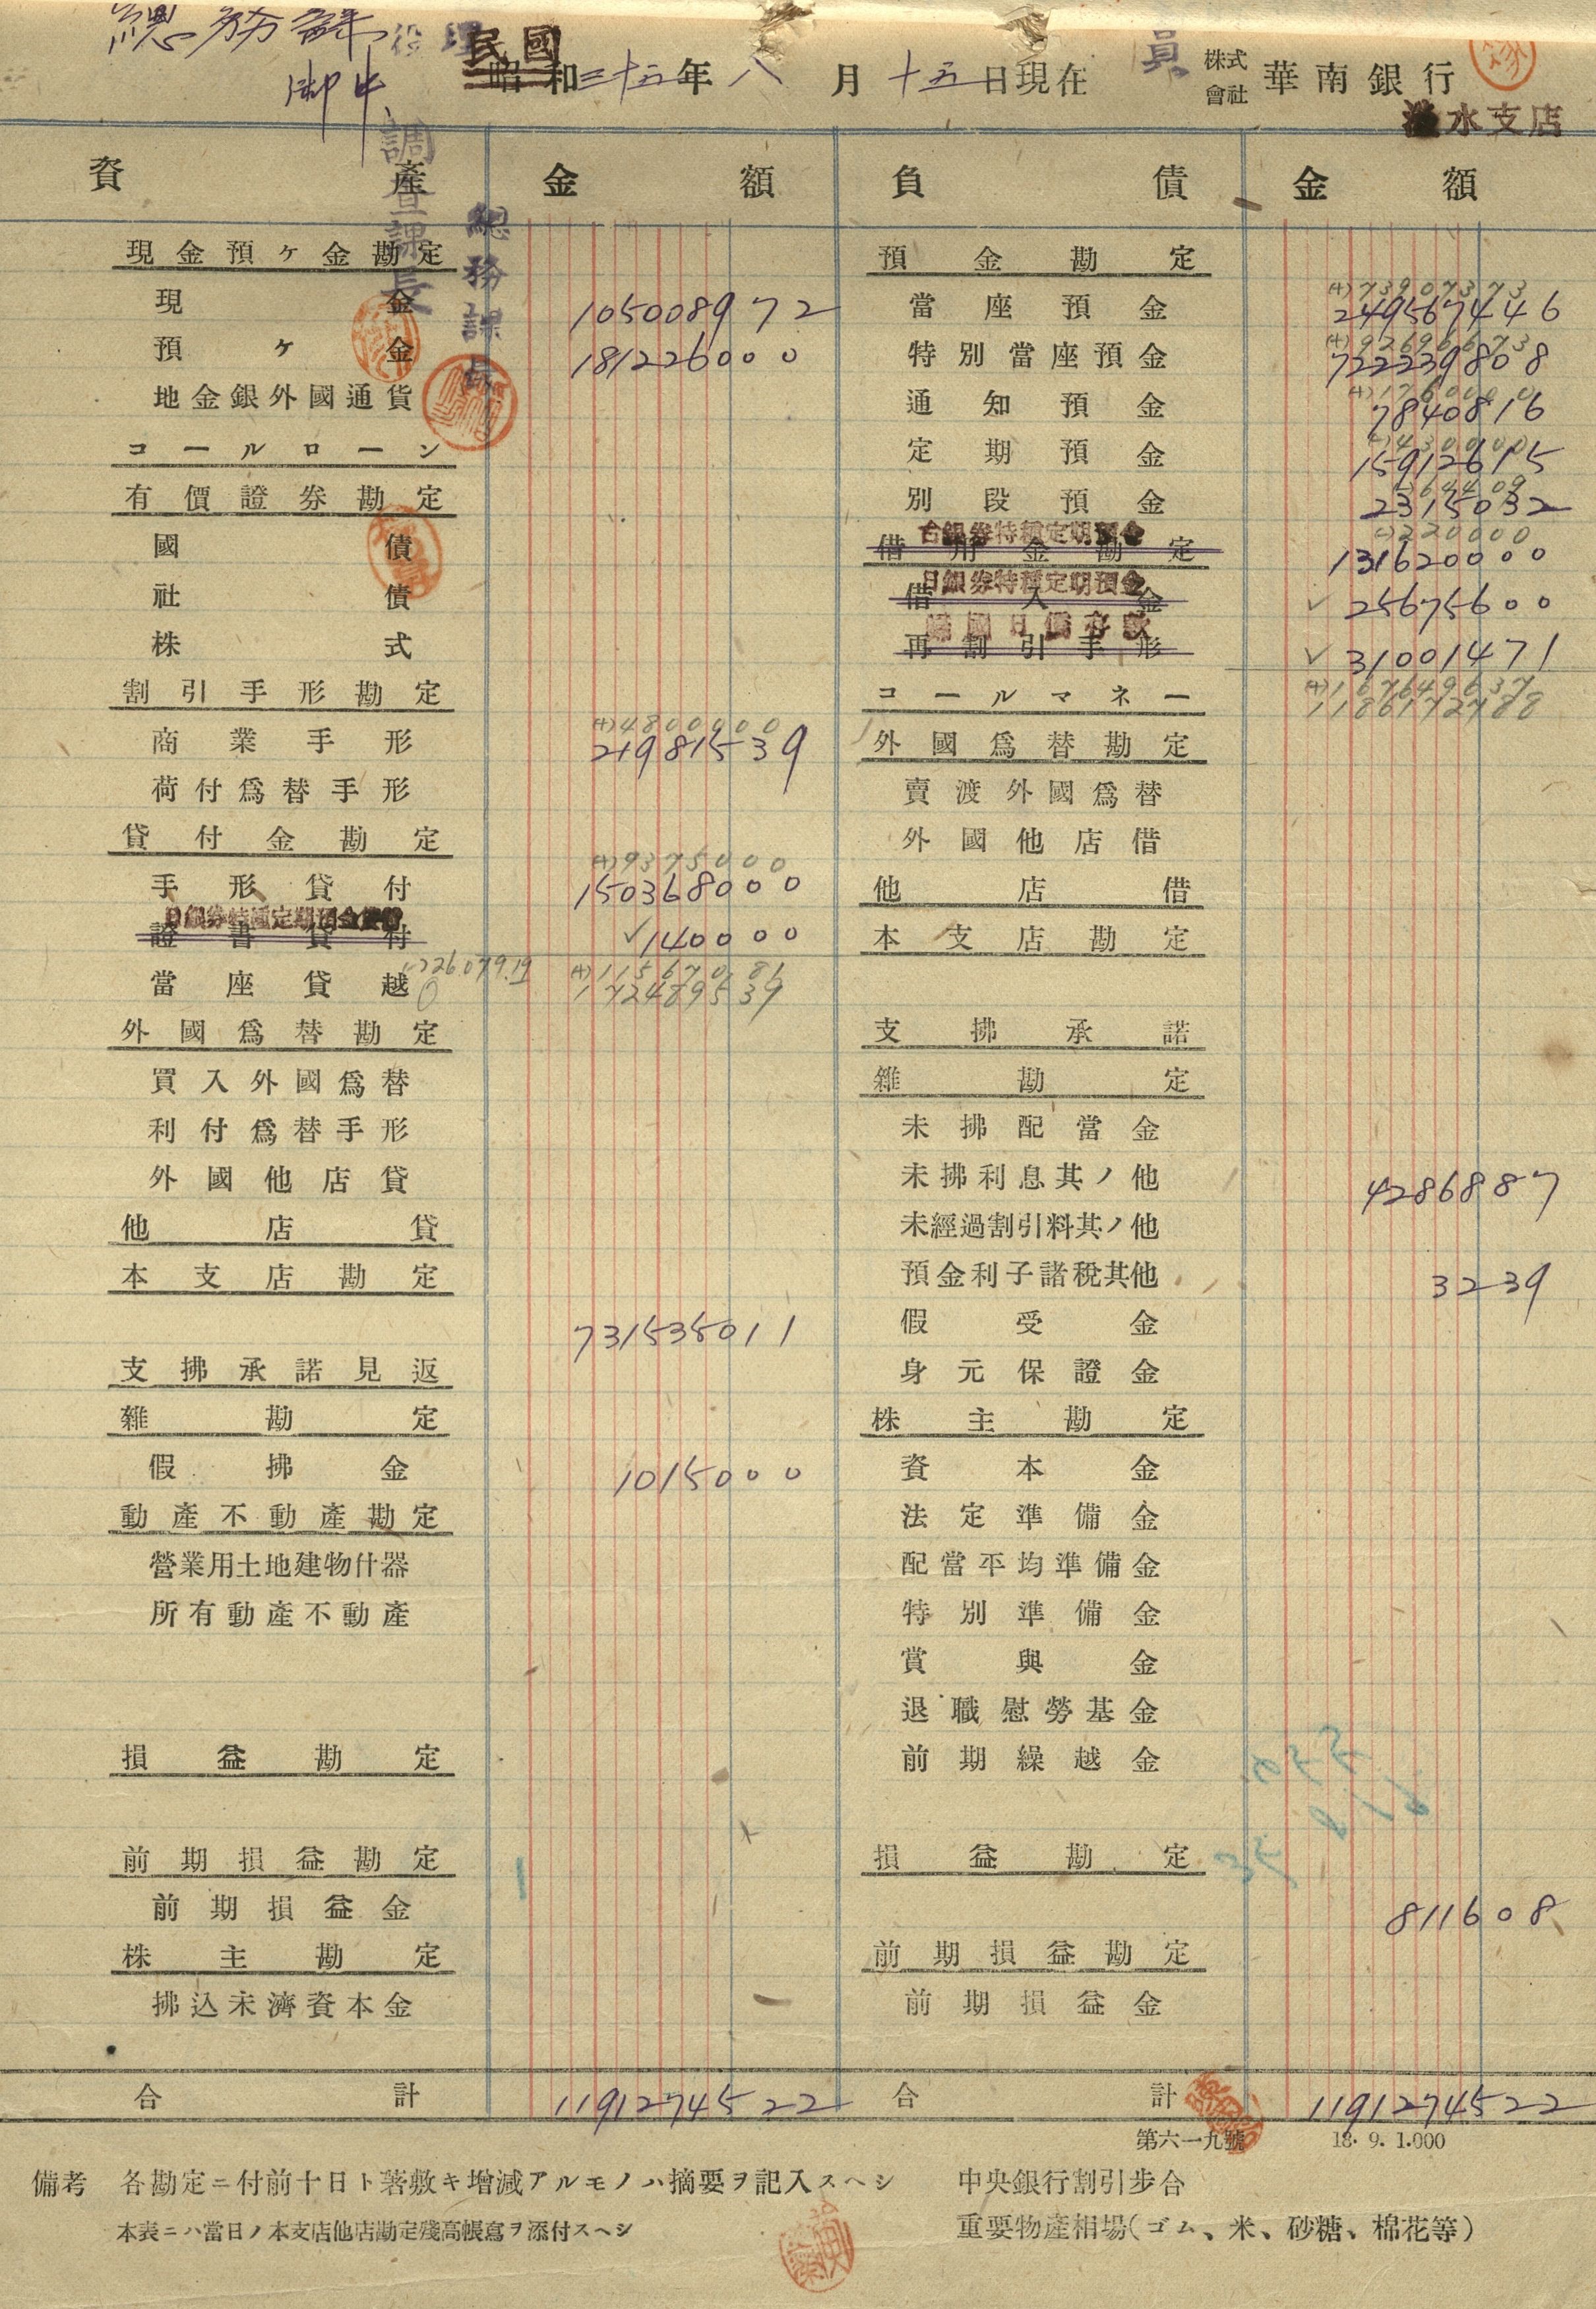 總務課
御中
民國
昭和三十五年八月十五日現在
株式會社 華南銀行
淡水支店
調查課長
總務課長
資產 金額 負債 金額
現金預ヶ金勘定
現金 1050089 72
預ヶ金 1812260 00
地金銀外國通貨
コールローン
有價證券勘定
國債
社債
株式
割引手形勘定
(+)48000 00
商業手形 219815 39
荷付爲替手形
貸付金勘定
(+)93750 00
手形貸付 1503680 00
日銀券特種定期預金貸付
證書貸付 ✓1400 00
26.079.19 (+)115670 81
當座貸越 1724895 39
外國爲替勘定
買入外國爲替
利付爲替手形
外國他店貸
他店貸
本支店勘定
7315350 11
支拂承諾見返
雜勘定
假拂金 10150 00
動產不動產勘定
營業用土地建物什器
所有動產不動產
損益勘定
前期損益勘定
前期損益金
株主勘定
拂込未濟資本金
合計 11912745 22
預金勘定
(+)739073 73
當座預金 2495674 46
(+)926966 73
特別當座預金 7222398 08
(+)1760 00
通知預金 78408 16
(-)4300 00
定期預金 159126 15
644 09
別段預金 23150 32
台銀券特種定期預金 (-)2200 00
借用金勘定 1316200 00
日銀券特種定期預金
借入金 ✓ 256756 00
歸國日僑存款
再割引手形 ✓ 310014 71
(+)1676496 37
コールマネー 11861727 88
外國爲替勘定
賣渡外國爲替
外國他店借
他店借
本支店勘定
支拂承諾
雜勘定
未拂配當金
未拂利息其ノ他 42868 87
未經過割引料其ノ他
預金利子諸稅其他 32 39
假受金
身元保證金
株主勘定
資本金
法定準備金
配當平均準備金
特別準備金
賞與金
退職慰勞基金
前期繰越金
損益勘定
8116 08
前期損益勘定
前期損益金
合計 11912745 22
第六一九號 18. 9. 1.000
備考 各勘定ニ付前十日ト著敷キ增減アルモノハ摘要ヲ記入スヘシ
本表ニハ當日ノ本支店他店勘定殘高帳寫ヲ添付スヘシ
中央銀行割引步合
重要物產相場(ゴム、米、砂糖、棉花等)